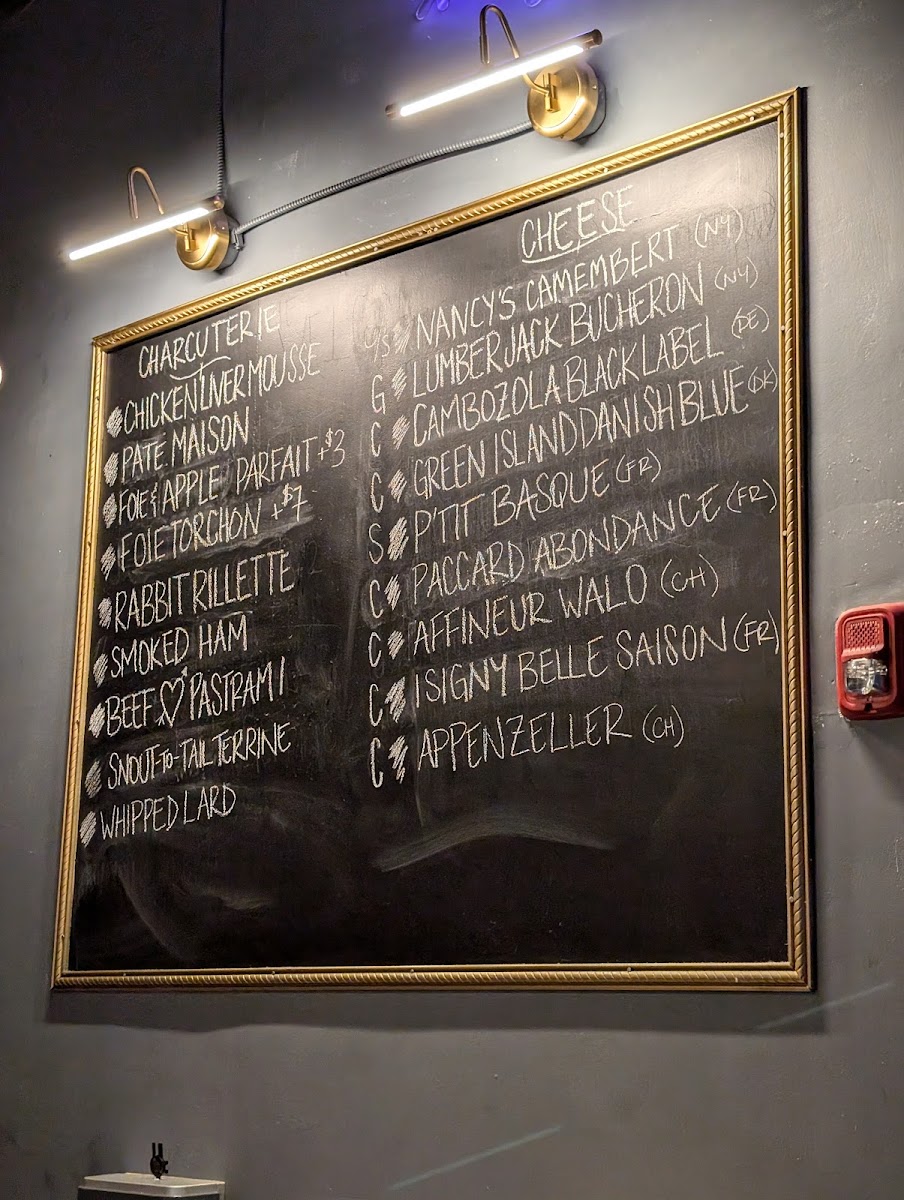 CHARCUTERIE
CHICKEN LIVER MOUSSE
PATE MAISON
FOIE & APPLE PARFAIT +$3
FOIE TORCHON +$7
RABBIT RILLETTE
SMOKED HAM
BEEF ♡ PASTRAMI
SNOUT-TO-TAIL TERRINE
WHIPPED LARD
CHEESE
C/S NANCY'S CAMEMBERT (NY)
G LUMBERJACK BUCHERON (NY)
C CAMBOZOLA BLACK LABEL (DE)
C GREEN ISLAND DANISH BLUE (DK)
S P'TIT BASQUE (FR)
C PACCARD ABONDANCE (FR)
C AFFINEUR WALO (CH)
C ISIGNY BELLE SAISON (FR)
C APPENZELLER (CH)